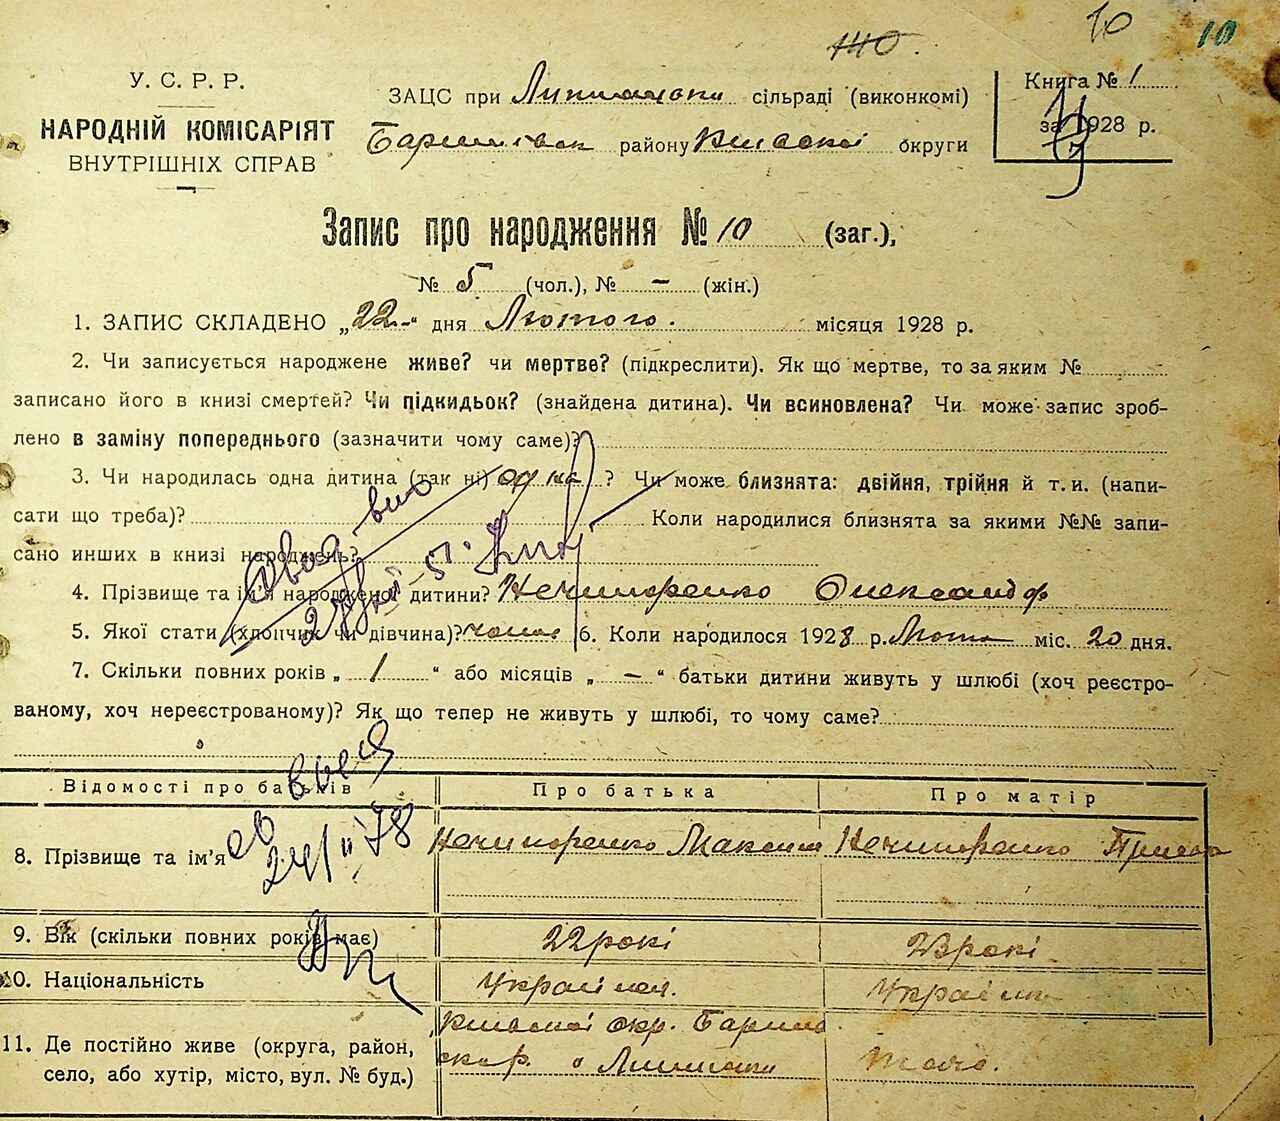 140. 10 10
У. С. Р. Р.
НАРОДНІЙ КОМІСАРІЯТ
ВНУТРІШНІХ СПРАВ
ЗАЦС при сільраді (виконкомі)
району Київської округи
Книга № 1
за 1928 р.
Запис про народження № 10 (заг.),
№ 5 (чол.), № – (жін.)
1. ЗАПИС СКЛАДЕНО „22–“ дня Лютого. місяця 1928 р.
2. Чи записується народжене живе? чи мертве? (підкреслити). Як що мертве, то за яким №
записано його в книзі смертей? Чи підкидьок? (знайдена дитина). Чи всиновлена? Чи може запис зроб-
лено в заміну попереднього (зазначити чому саме)?
3. Чи народилась одна дитина (так ні) одна ? Чи може близнята: двійня, трійня й т. и. (напи-
сати що треба)? Коли народилися близнята за якими №№ запи-
сано инших в книзі народжень?
4. Прізвище та ім'я народженої дитини? Нечипоренко Олександр
5. Якої статі (хлопчик чи дівчина)? 6. Коли народилося 1928 р. міс. 20 дня.
7. Скільки повних років „ 1 “ або місяців „ – “ батьки дитини живуть у шлюбі (хоч реєстро-
ваному, хоч нереєстрованому)? Як що тепер не живуть у шлюбі, то чому саме?
Відомості про батьків Про батька Про матір
8. Прізвище та ім'я Нечипоренко Максим Нечипоренко
24/ІІ 78
9. Вік (скільки повних років має) 22 рокі 23 рокі
10. Національність
11. Де постійно живе (округа, район,
село, або хутір, місто, вул. № буд.)
Київської окр.